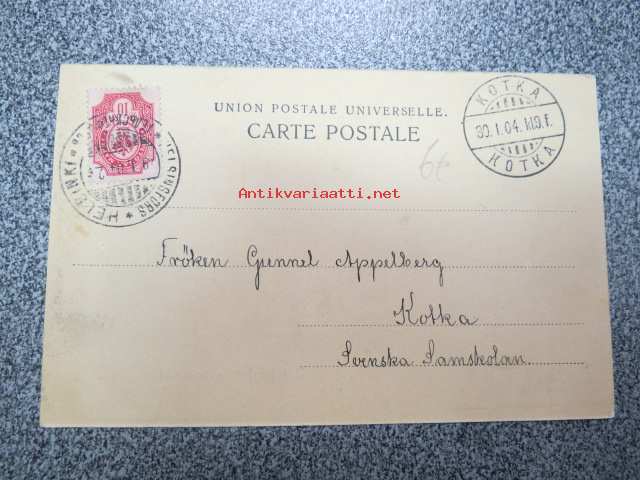 UNION POSTALE UNIVERSELLE.
CARTE POSTALE
KOTKA
30.1.04.
KOTKA
HELSINGFORS
HELSINKI
10
6€
Antikvariaatti.net
Fröken Gunnel Appelberg
Kotka
Svenska Samskolan.